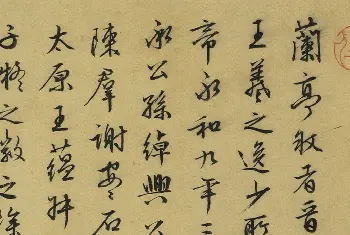 蘭亭叙者晋
王羲之逸少所
帝永和九年三
承公孫綽興公
陳羣謝安〻石
太原王蘊叔
子凝之徽之